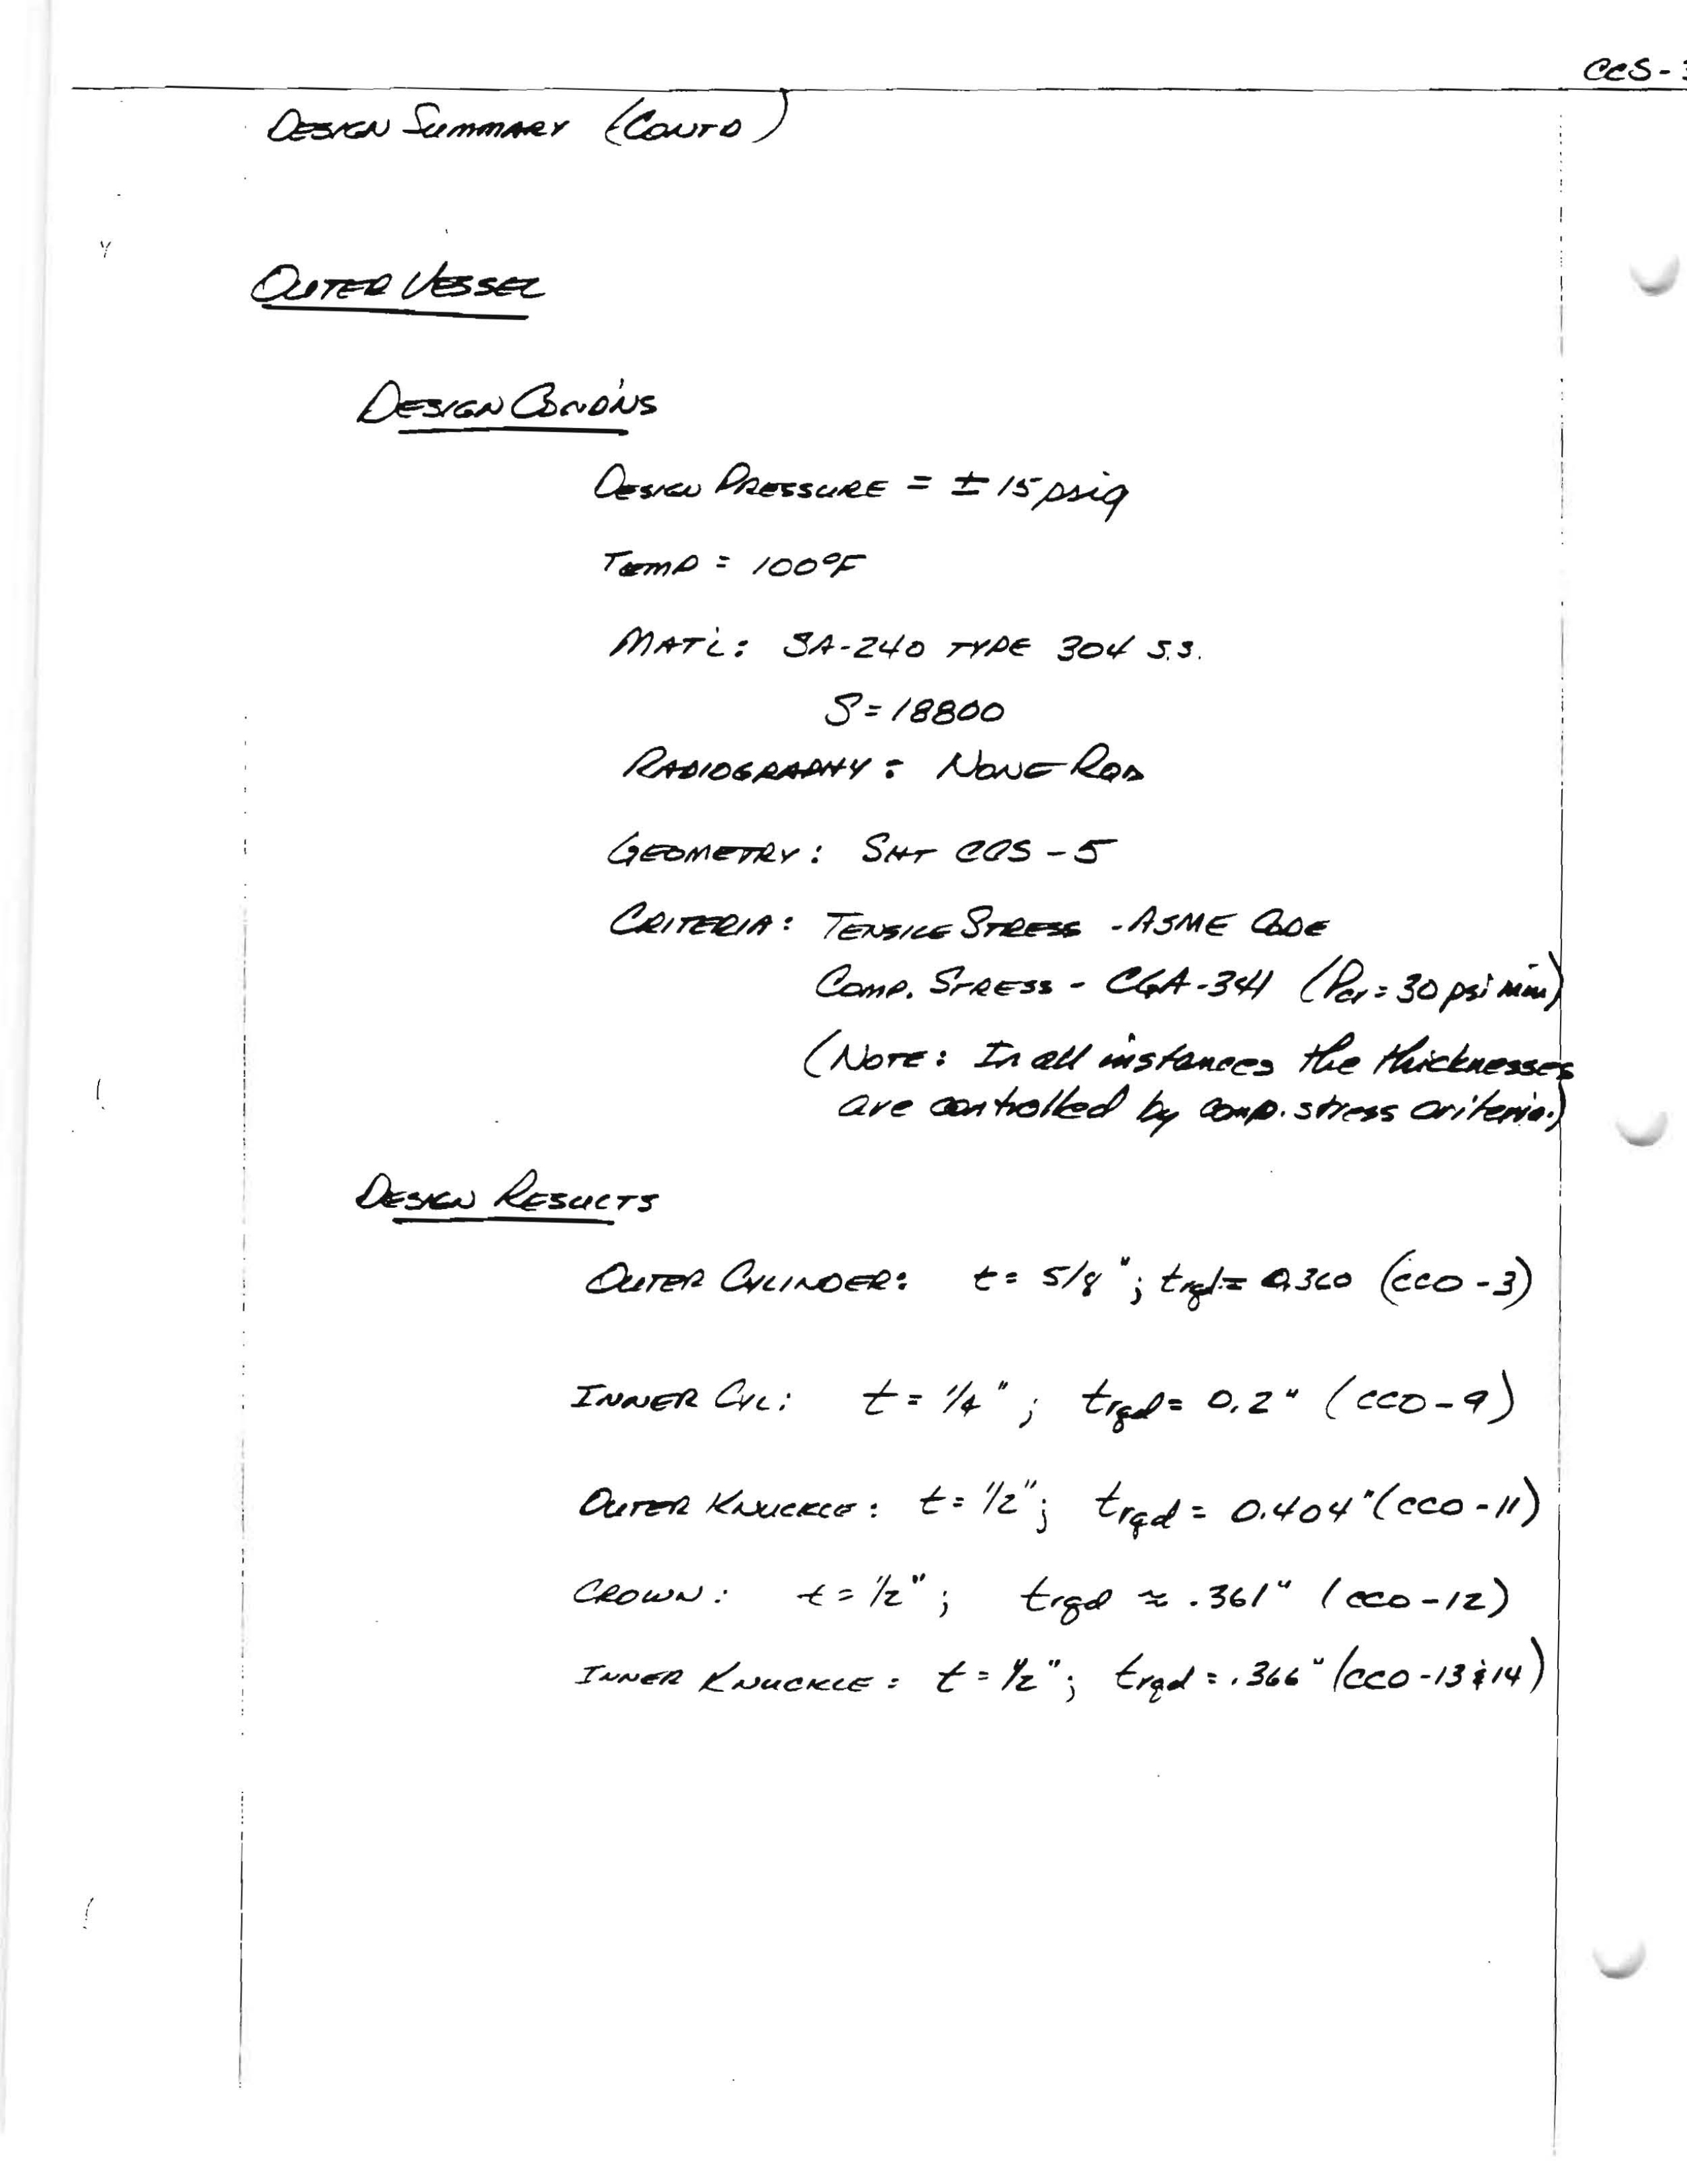 CCS-3
DESIGN SUMMARY (CONT'D)
OUTER VESSEL
DESIGN COND'NS
DESIGN PRESSURE = ± 15 psig
TEMP = 100°F
MAT'L: SA-240 TYPE 304 S.S.
S = 18800
RADIOGRAPHY: NONE RQD
GEOMETRY: SHT CCS-5
CRITERIA: TENSILE STRESS - ASME CODE
COMP. STRESS - CGA-341 (Pcr = 30 psi min)
(NOTE: In all instances the thicknesses
are controlled by comp. stress criteria.)
DESIGN RESULTS
OUTER CYLINDER: t = 5/8"; trqd = 0.360 (CCO-3)
INNER CYL: t = 1/4"; trqd = 0.2" (CCO-9)
OUTER KNUCKLE: t = 1/2"; trqd = 0.404" (CCO-11)
CROWN: t = 1/2"; trqd ≈ .361" (CCO-12)
INNER KNUCKLE: t = 1/2"; trqd = .366" (CCO-13 & 14)